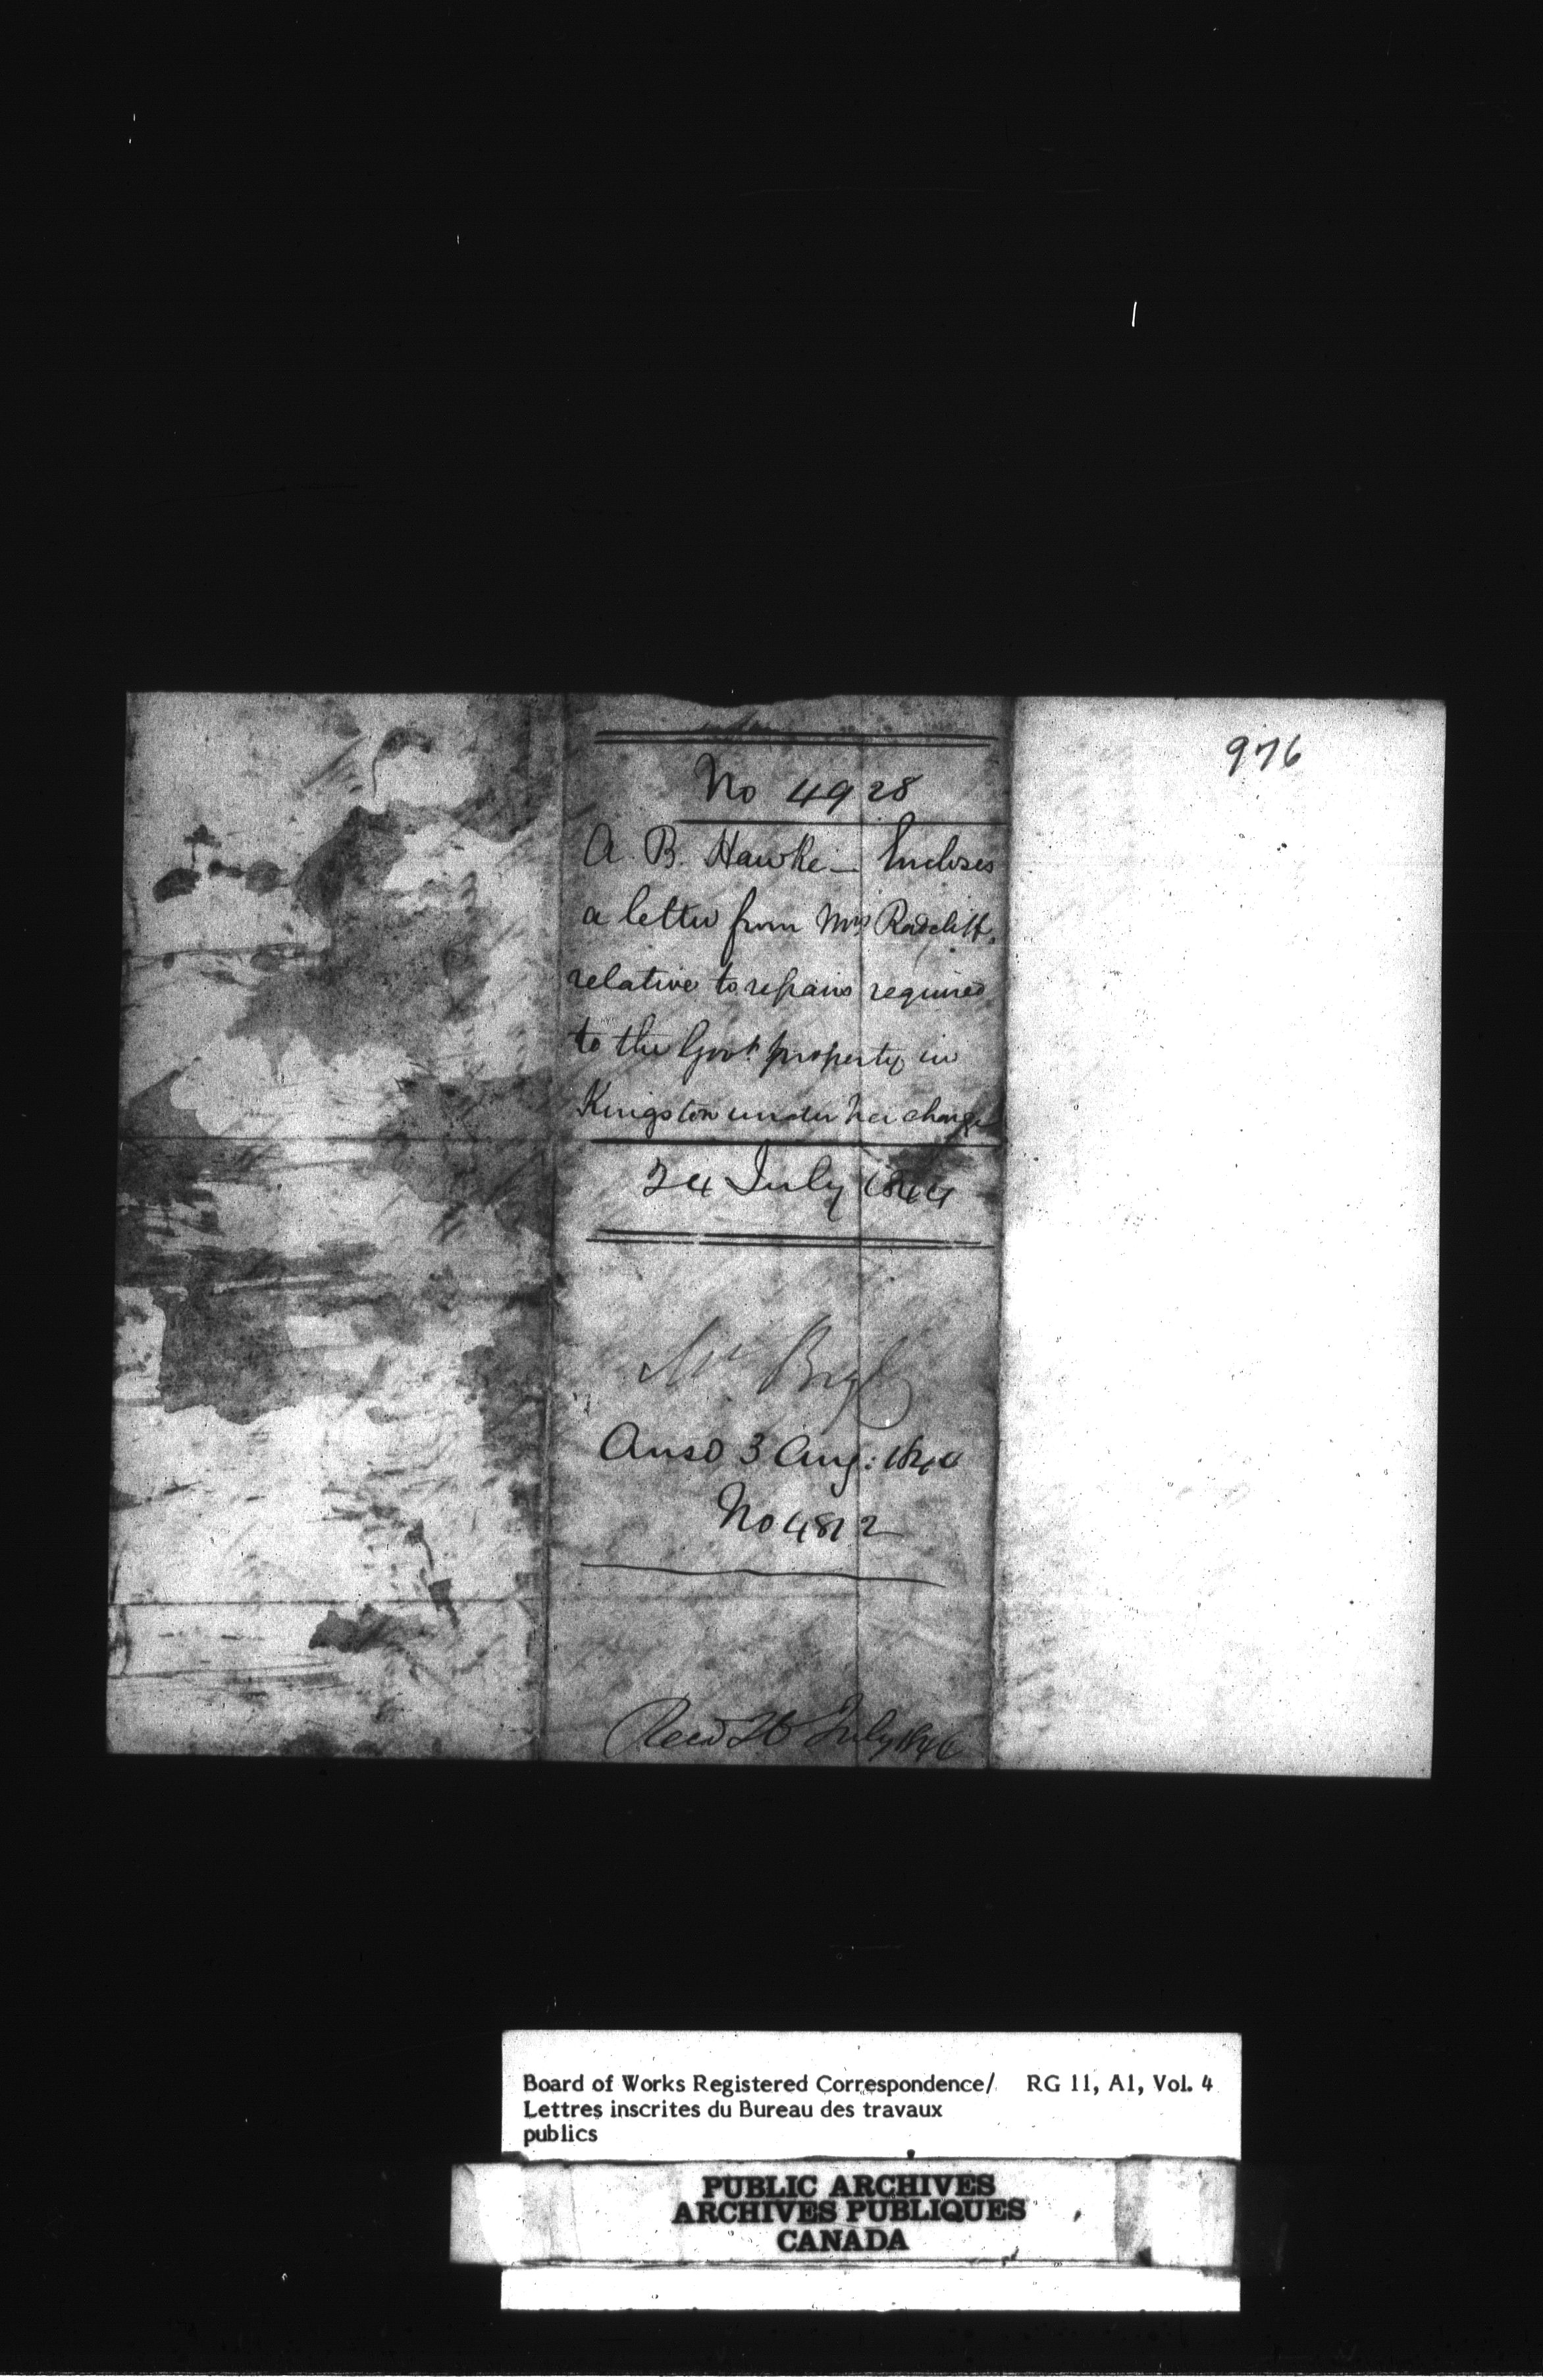 No 4928
A. B. Hawke — Encloses
a letter from Mrs Radcliff.
relative to repairs required
to the Govt property in
Kingston under her charge
24 July 1844
Mr
Ansd 3 Aug: 184
No 4812
Recd 26 July 184
976
Board of Works Registered Correspondence/ RG 11, A1, Vol. 4
Lettres inscrites du Bureau des travaux
publics
PUBLIC ARCHIVES
ARCHIVES PUBLIQUES
CANADA